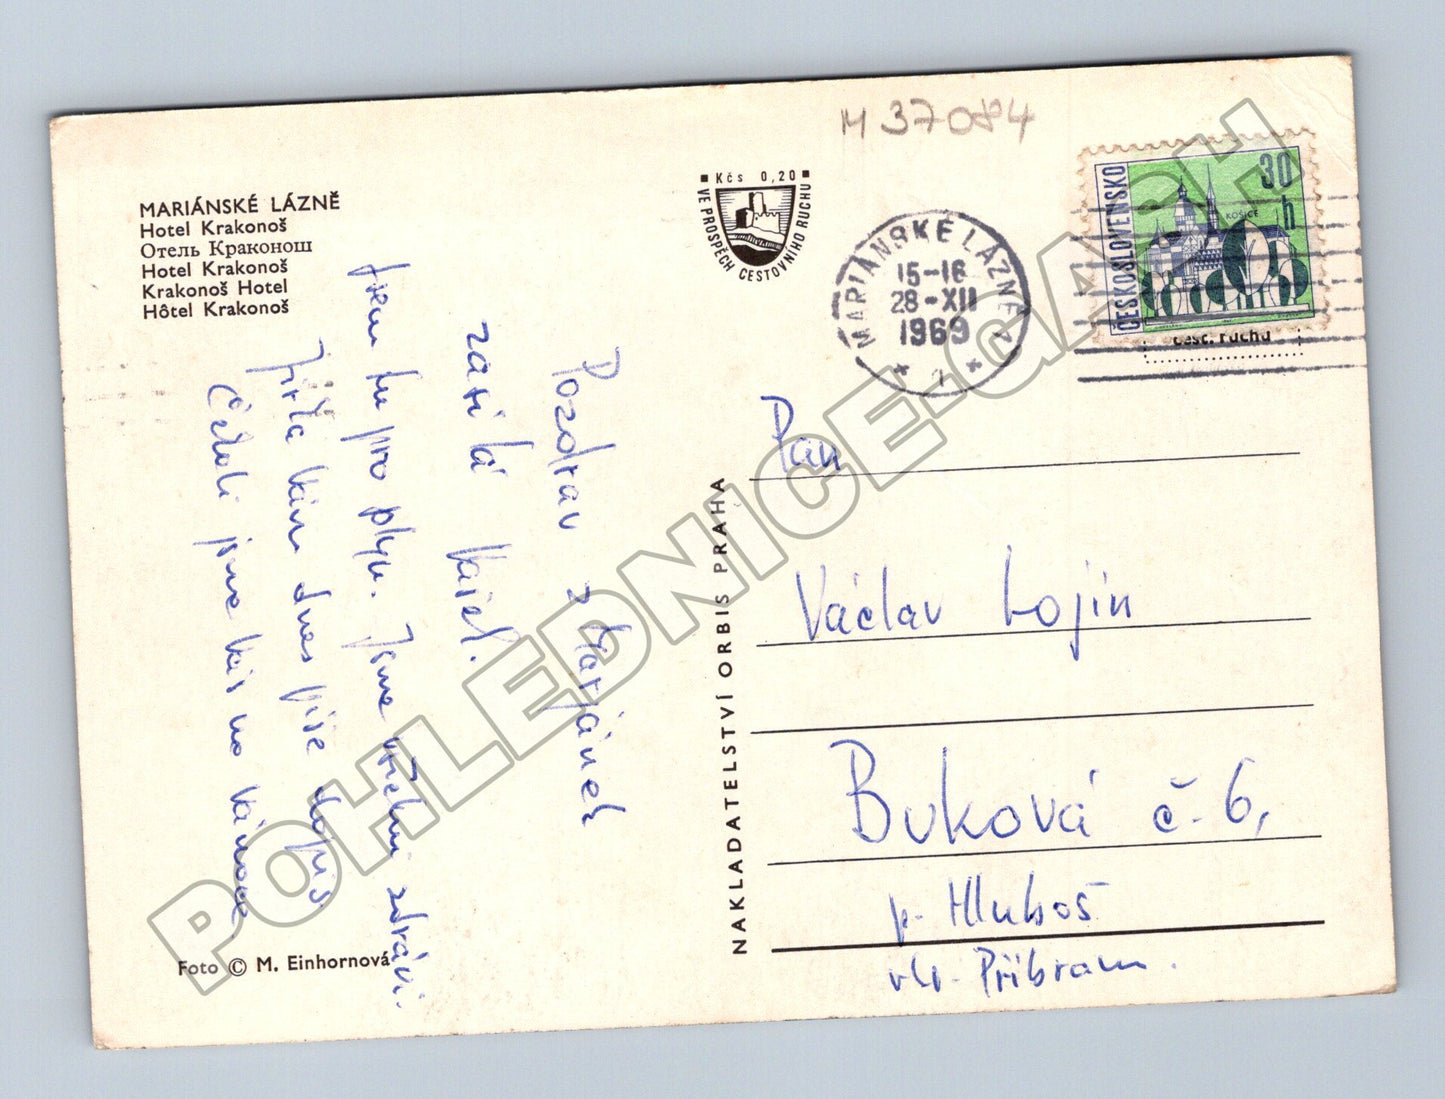 M 37084
MARIÁNSKÉ LÁZNĚ
Hotel Krakonoš
Отель Краконош
Hotel Krakonoš
Krakonoš Hotel
Hôtel Krakonoš
Kčs 0,20
VE PROSPĚCH CESTOVNÍHO RUCHU
MARIÁNSKÉ LÁZNĚ
15-16
28-XII
1969
* 1 *
ČESKOSLOVENSKO
30
h
KOŠICE
cest. ruchu
Pozdrav z Mariánek
zasílá
jsem tu pro plyn. Jsme všichni zdrávi.
Jirka Vám dnes píše dopis
Čekali jsme Vás na vánoce
Pan
Václav Lojín
Buková č. 6,
p. Hluboš
okr. Příbram.
NAKLADATELSTVÍ ORBIS PRAHA
Foto © M. Einhornová
POHLEDNICE-CASH